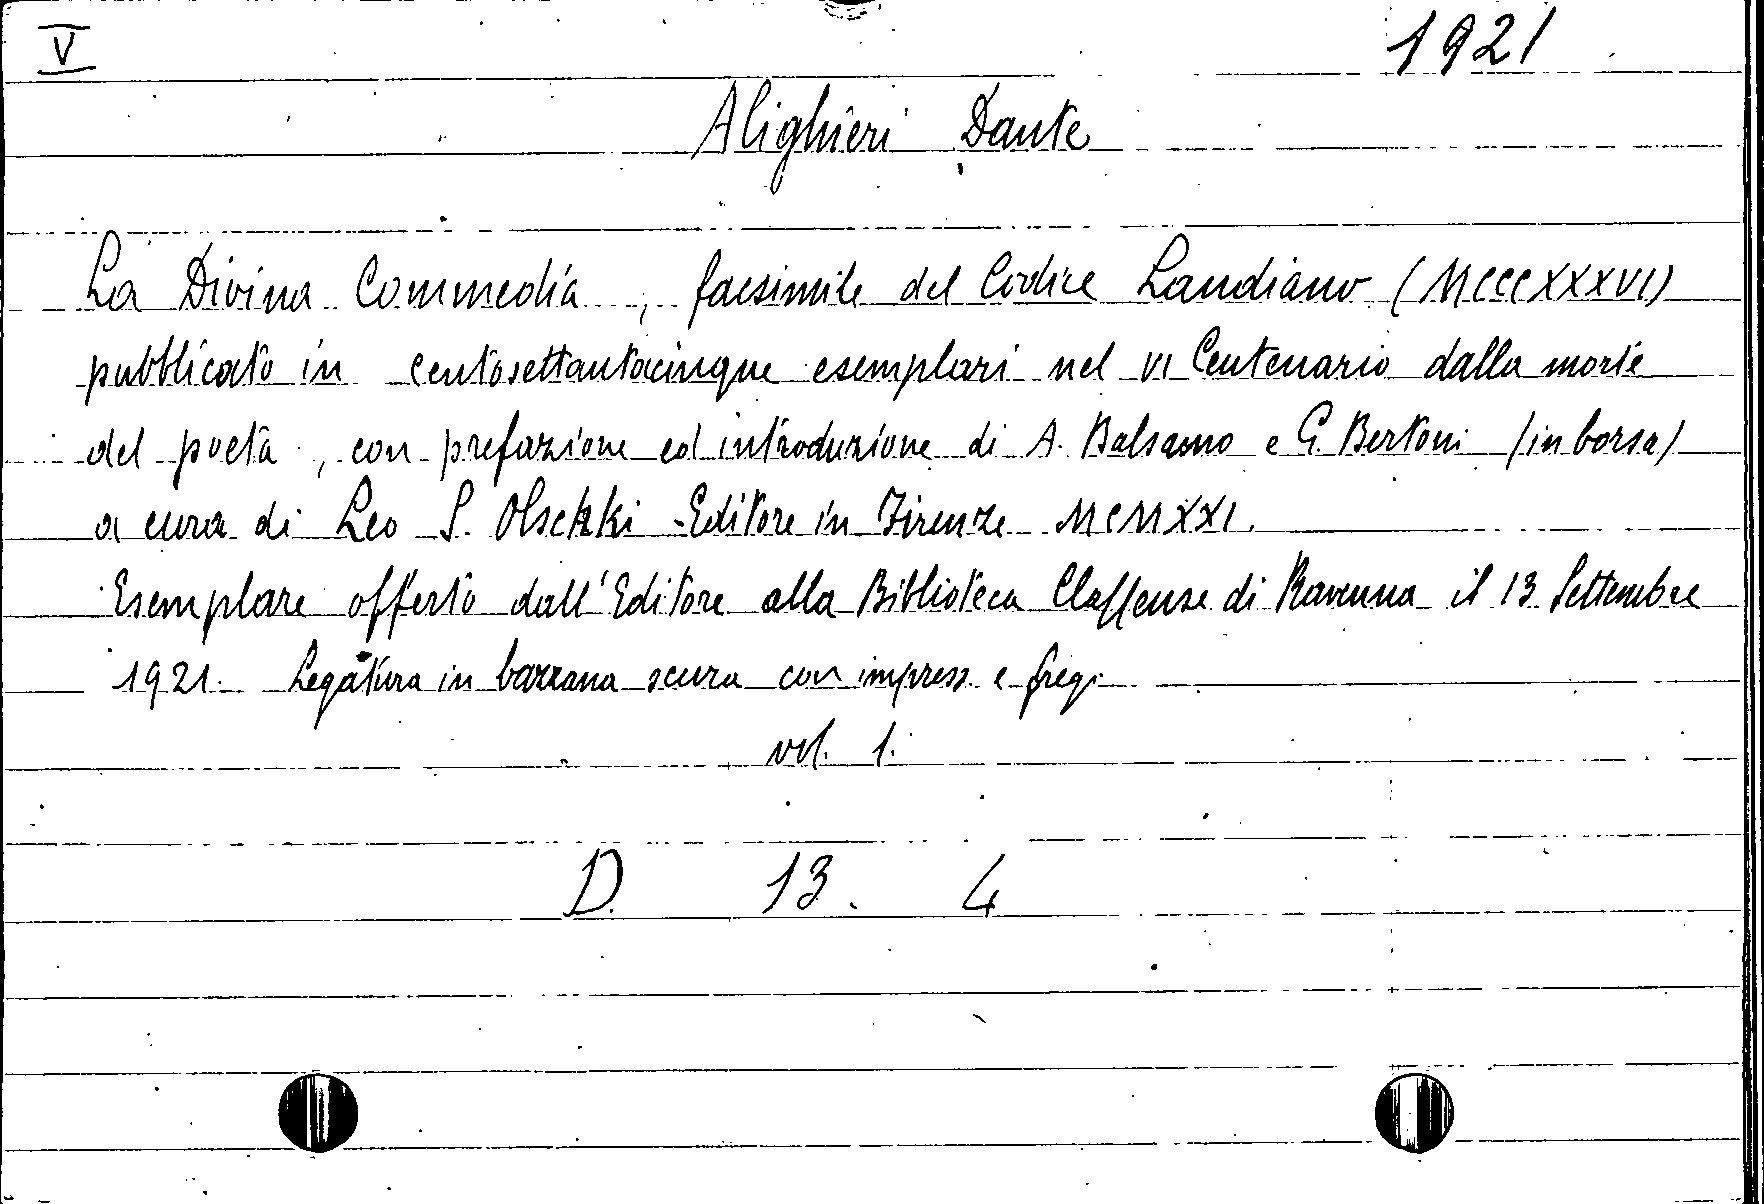 V
1921
Alighieri Dante
La Divina Commedia, facsimile del Codice Landiano (MCCCXXXVI)
pubblicato in centosettantacinque esemplari nel VI Centenario dalla morte
del poeta, con prefazione ed introduzione di A. Balsamo e G. Bertoni (in borsa)
a cura di Leo S. Olschki - Editore in Firenze MCMXXI.
Esemplare offerto dall'Editore alla Biblioteca Classense di Ravenna il 13 Settembre
1921. Legatura in bazzana scura con impress. e fregi
vol. 1.
D. 13. 4